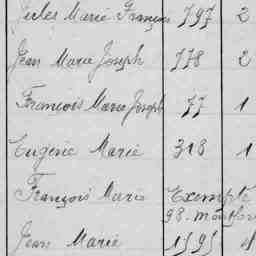 Jules Marie François 797 2
Jean Marie Joseph 778 2
François Marie Joseph 77 1
Eugène Marie 318 1
François Marie Exempté
98.
Jean Marie 1595 4